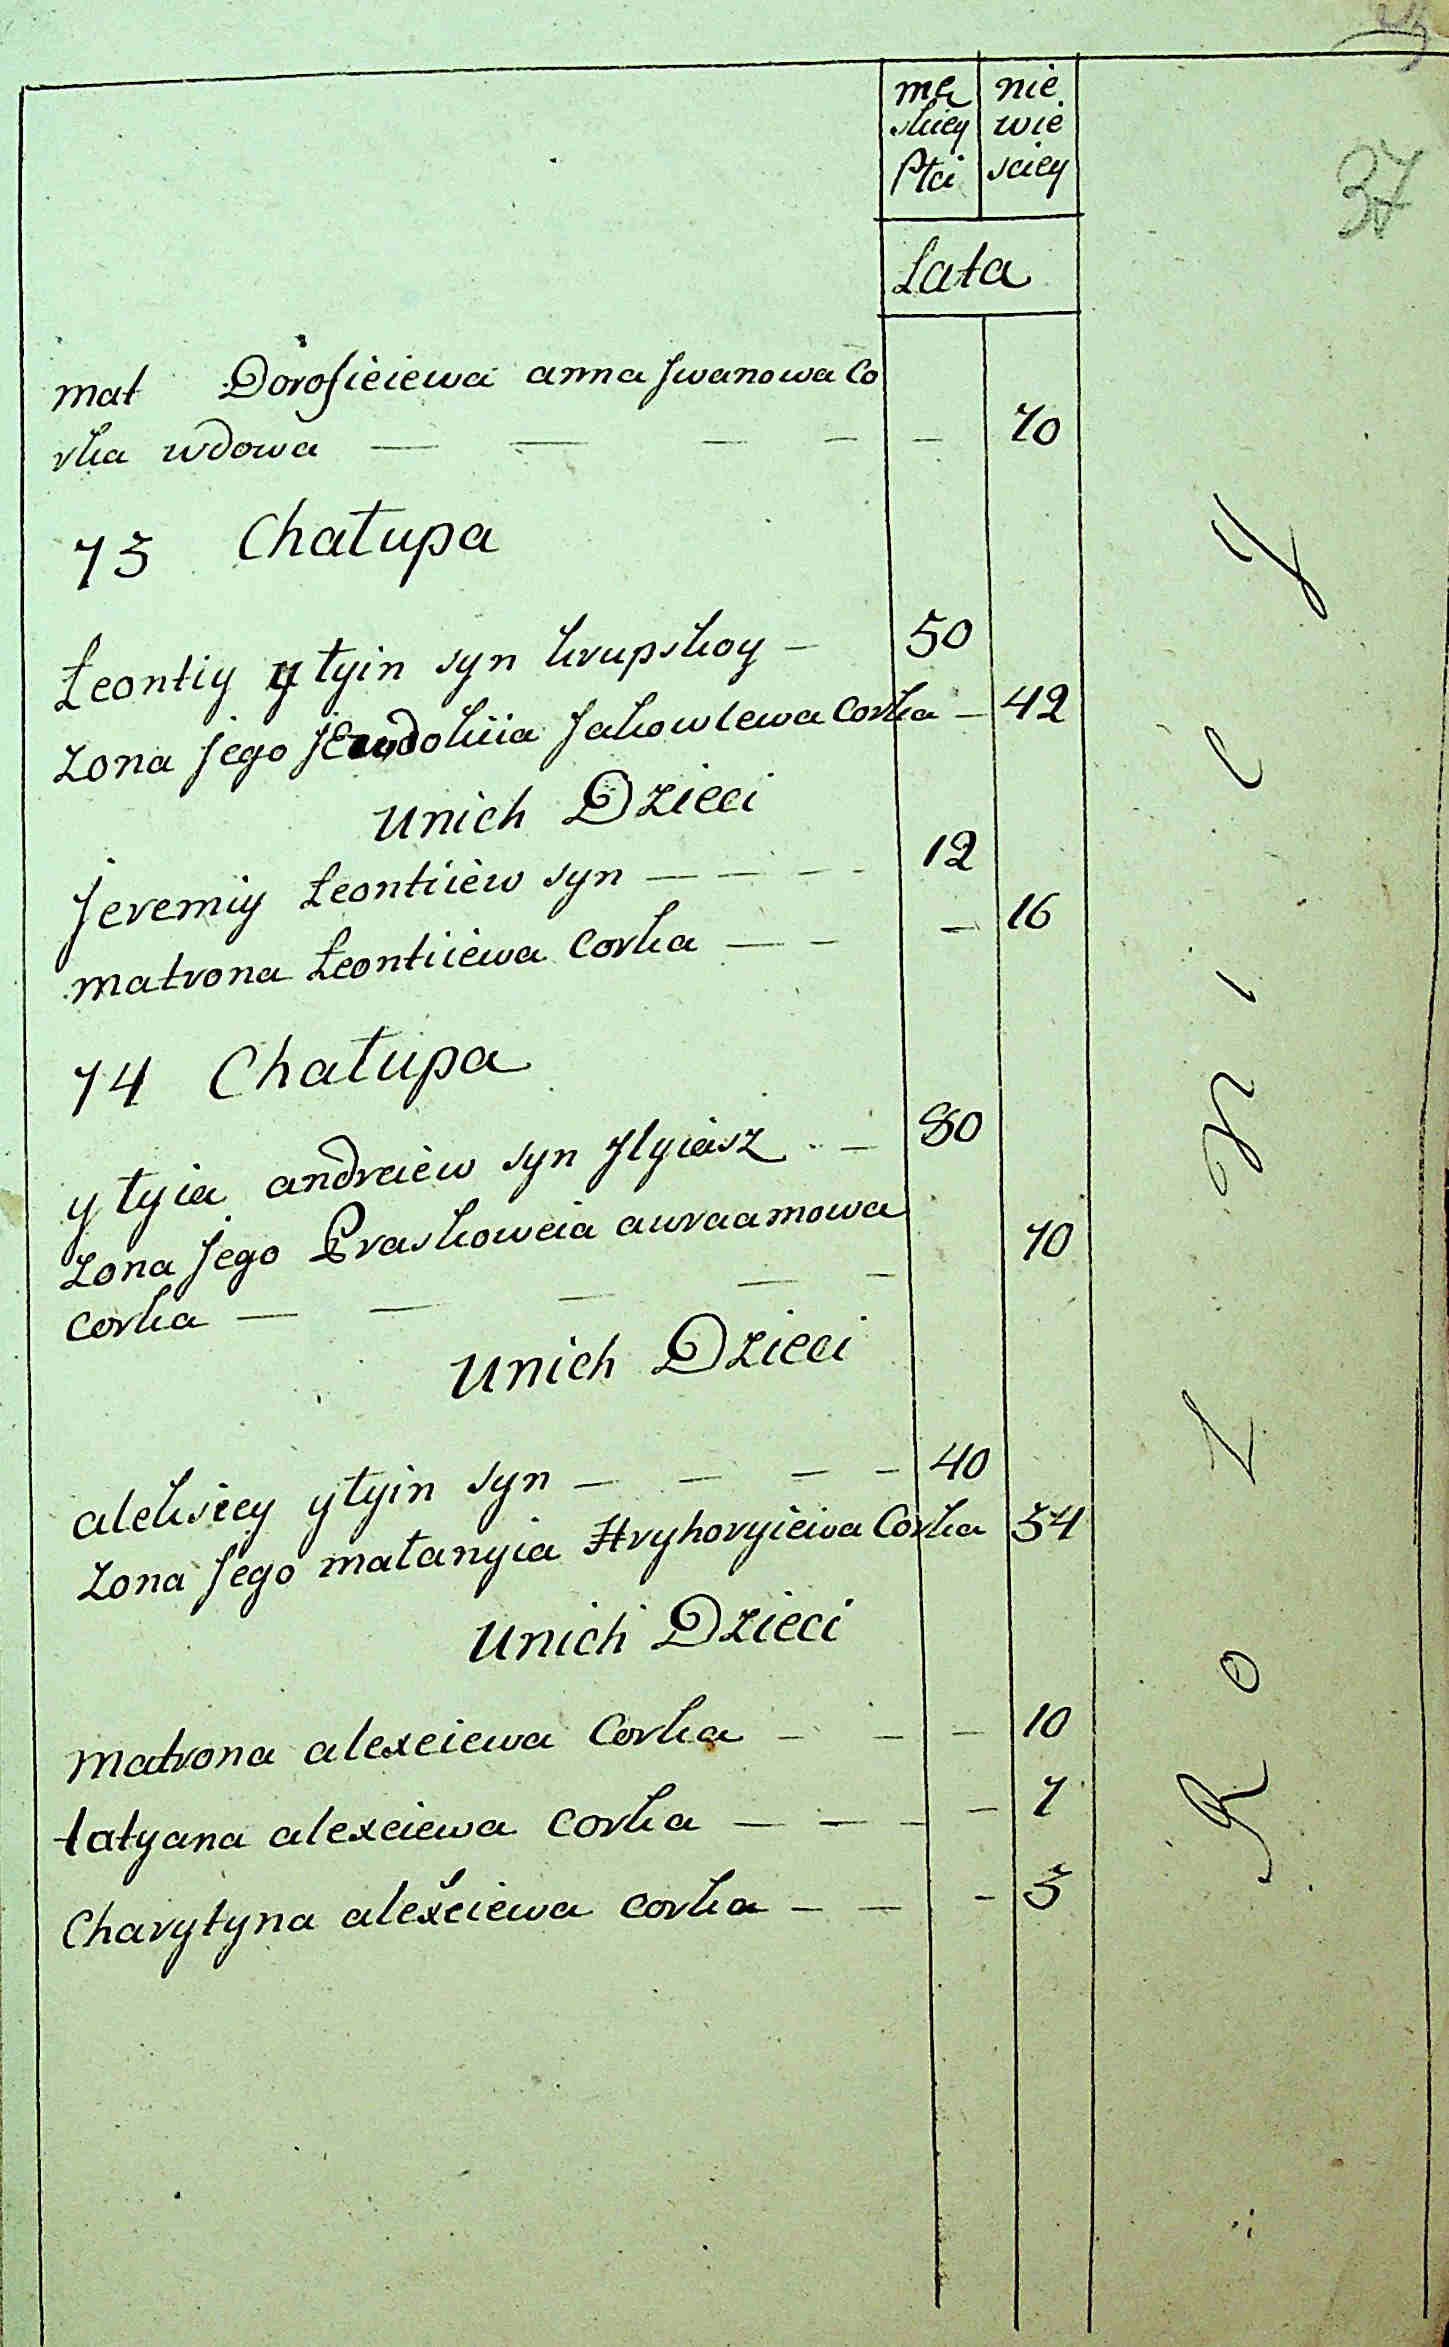 37
mę nie
skiey wie
Płci sciey
Lata
mat Dorofieiewa anna Jwanowa Co
rka wdowa — — — — — 70
73 Chałupa
Łeontiy yłyin syn krupskoy — 50
Zona Jego Jewdokiia Jakowlewa Corka — 42
Unich Dzieci
Jeremiy Łeontiiew syn — — — — 12
matrona Łeontiiewa Corka — — — 16
74 Chałupa
yłyia andreiew syn Jlyiasz — 80
Zona Jego Praskoweia awraamowa
corka — — — — — 70
Unich Dzieci
alekseey yłyin syn — — — — 40
Zona Jego małanyia Hryhoryiewa Corka 34
Unich Dzieci
matrona alexeiewa Corka — — — 10
tatyana alexeiewa corka — — — — 7
Charytyna alexeiewa corka — — — 3
Roznicy